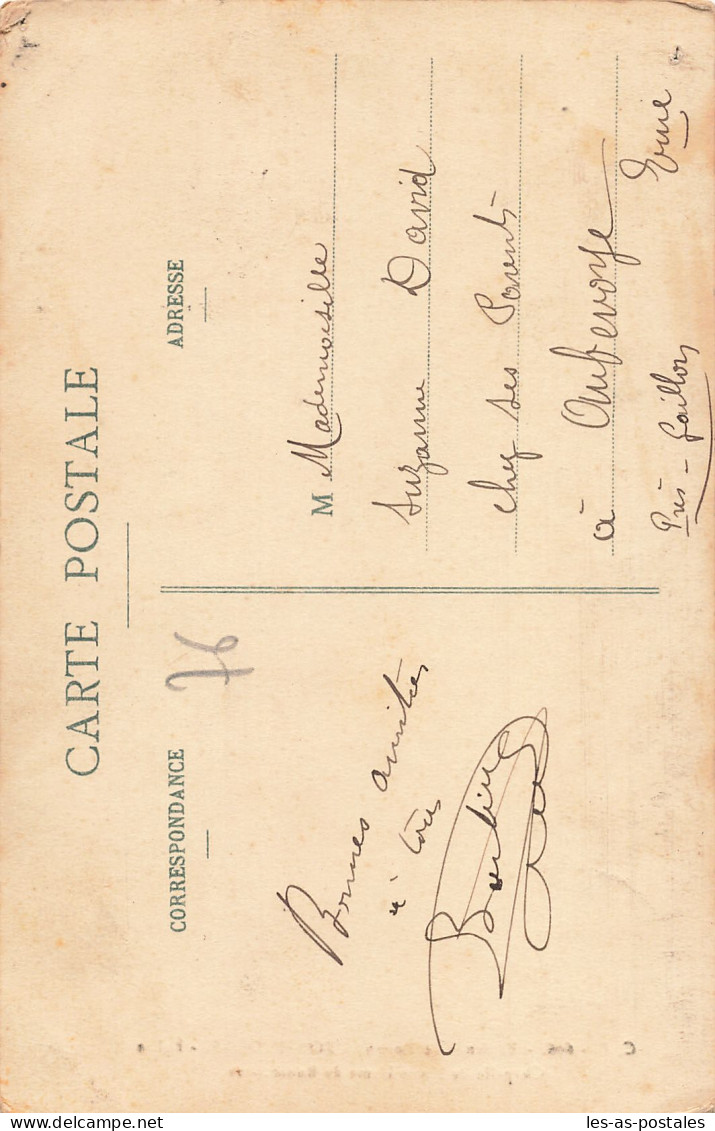 CARTE POSTALE
CORRESPONDANCE
76
Bonnes amitiés
à tous
ADRESSE
M Mademoiselle
Suzanne David
chez ses Parents
à Aubevoye
Près-Gaillon Eure
les-as-postales
delcampe.net